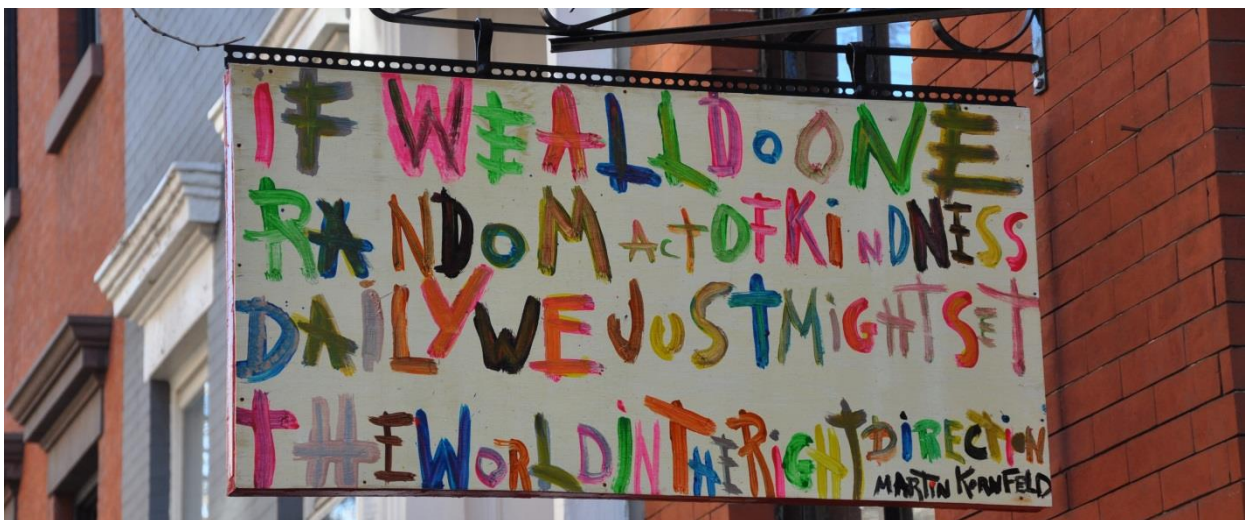 IF WE ALL DO ONE
RANDOM ACT OF KiNDNESS
DAILY WE JUST MiGHT SET
THE WORLD IN THE RiGHT DIRECTiON
MARTIN KORNFELD